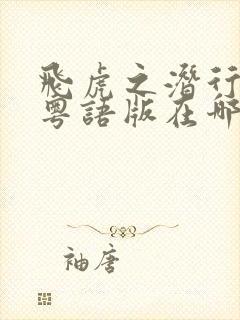 飛虎之潛行
粵語版在哪
袖唐